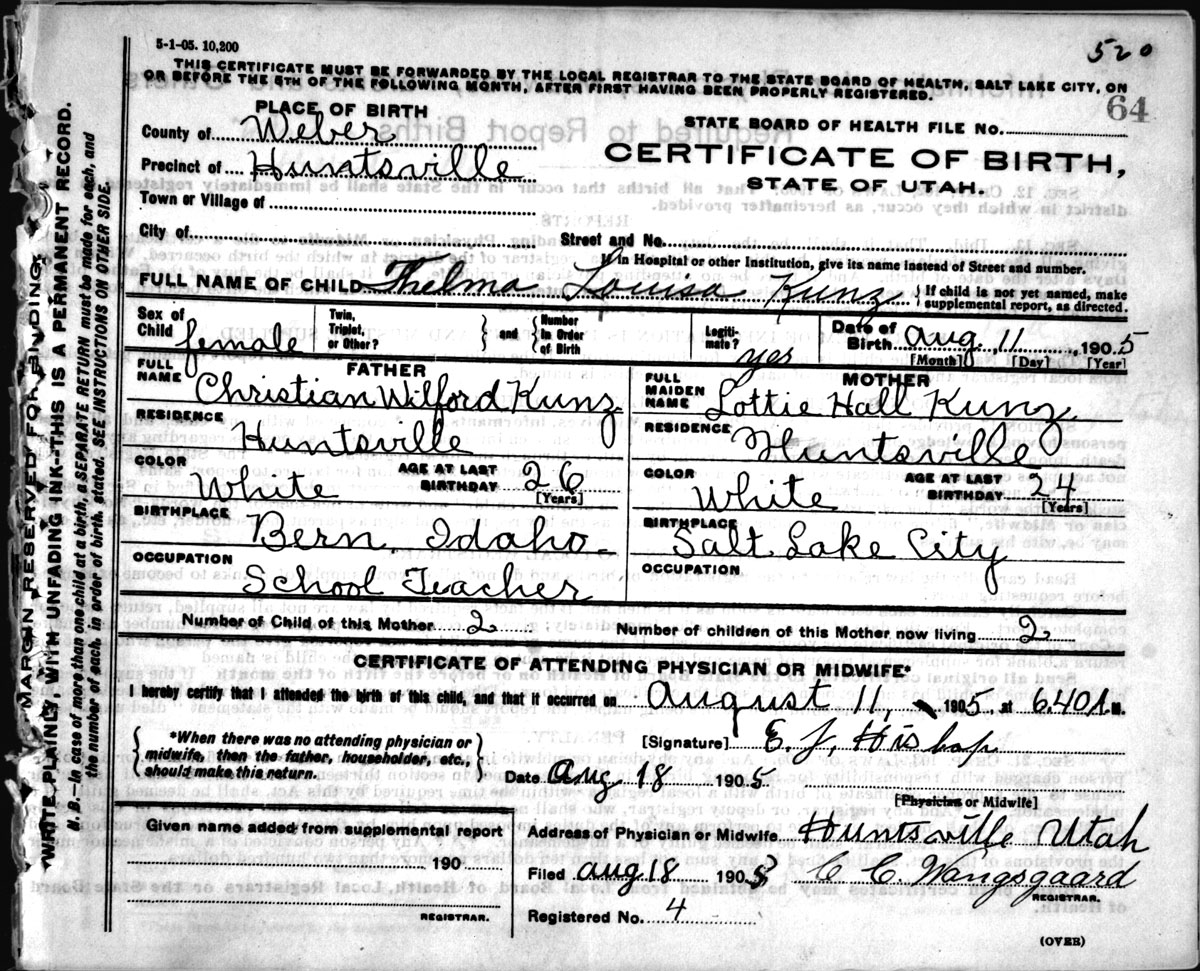 5-1-05. 10,200
520
THIS CERTIFICATE MUST BE FORWARDED BY THE LOCAL REGISTRAR TO THE STATE BOARD OF HEALTH, SALT LAKE CITY, ON
OR BEFORE THE 5TH OF THE FOLLOWING MONTH, AFTER FIRST HAVING BEEN PROPERLY REGISTERED.
64
PLACE OF BIRTH
STATE BOARD OF HEALTH FILE NO.
County of Weber
CERTIFICATE OF BIRTH,
Precinct of Huntsville
STATE OF UTAH.
Town or Village of
City of Street and No.
If in Hospital or other Institution, give its name instead of Street and number.
FULL NAME OF CHILD Thelma Louisa Kunz { If child is not yet named, make supplemental report, as directed.
Sex of Child female Twin, Triplet, or Other? } and { Number in Order of Birth Legitimate? yes Date of Birth Aug 11, 1905
[Month] [Day] [Year]
FATHER
FULL NAME Christian Wilford Kunz
RESIDENCE Huntsville
COLOR White AGE AT LAST BIRTHDAY 26
[Years]
BIRTHPLACE Bern, Idaho
OCCUPATION School Teacher
MOTHER
FULL MAIDEN NAME Lottie Hall Kunz
RESIDENCE Huntsville
COLOR White AGE AT LAST BIRTHDAY 24
[Years]
BIRTHPLACE Salt Lake City
OCCUPATION
Number of Child of this Mother 2 Number of children of this Mother now living 2
CERTIFICATE OF ATTENDING PHYSICIAN OR MIDWIFE*
I hereby certify that I attended the birth of this child, and that it occurred on August 11, 1905, at 6.40 A M.
{ *When there was no attending physician or midwife, then the father, householder, etc., should make this return. }
[Signature] E. J.
Date Aug. 18 1905
[Physician or Midwife]
Given name added from supplemental report
190
REGISTRAR.
Address of Physician or Midwife Huntsville Utah
Filed Aug 18 1905 C. C. Wangsgaard
REGISTRAR.
Registered No. 4
(OVER)
MARGIN RESERVED FOR BINDING.
WRITE PLAINLY WITH UNFADING INK—THIS IS A PERMANENT RECORD.
N. B.—In case of more than one child at a birth, a SEPARATE RETURN must be made for each, and
the number of each, in order of birth, stated. SEE INSTRUCTIONS ON OTHER SIDE.